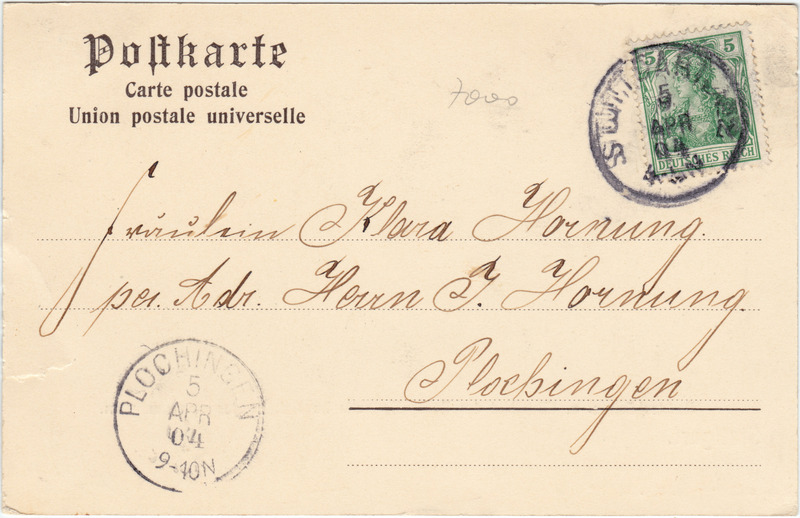 Postkarte
Carte postale
Union postale universelle
7000
5 5
DEUTSCHES REICH
STUTTGART
5
APR
04
Fräulein Klara Hornung.
per. Adr. Herrn J. Hornung.
Plochingen
PLOCHINGEN
5
APR
04
9-10N